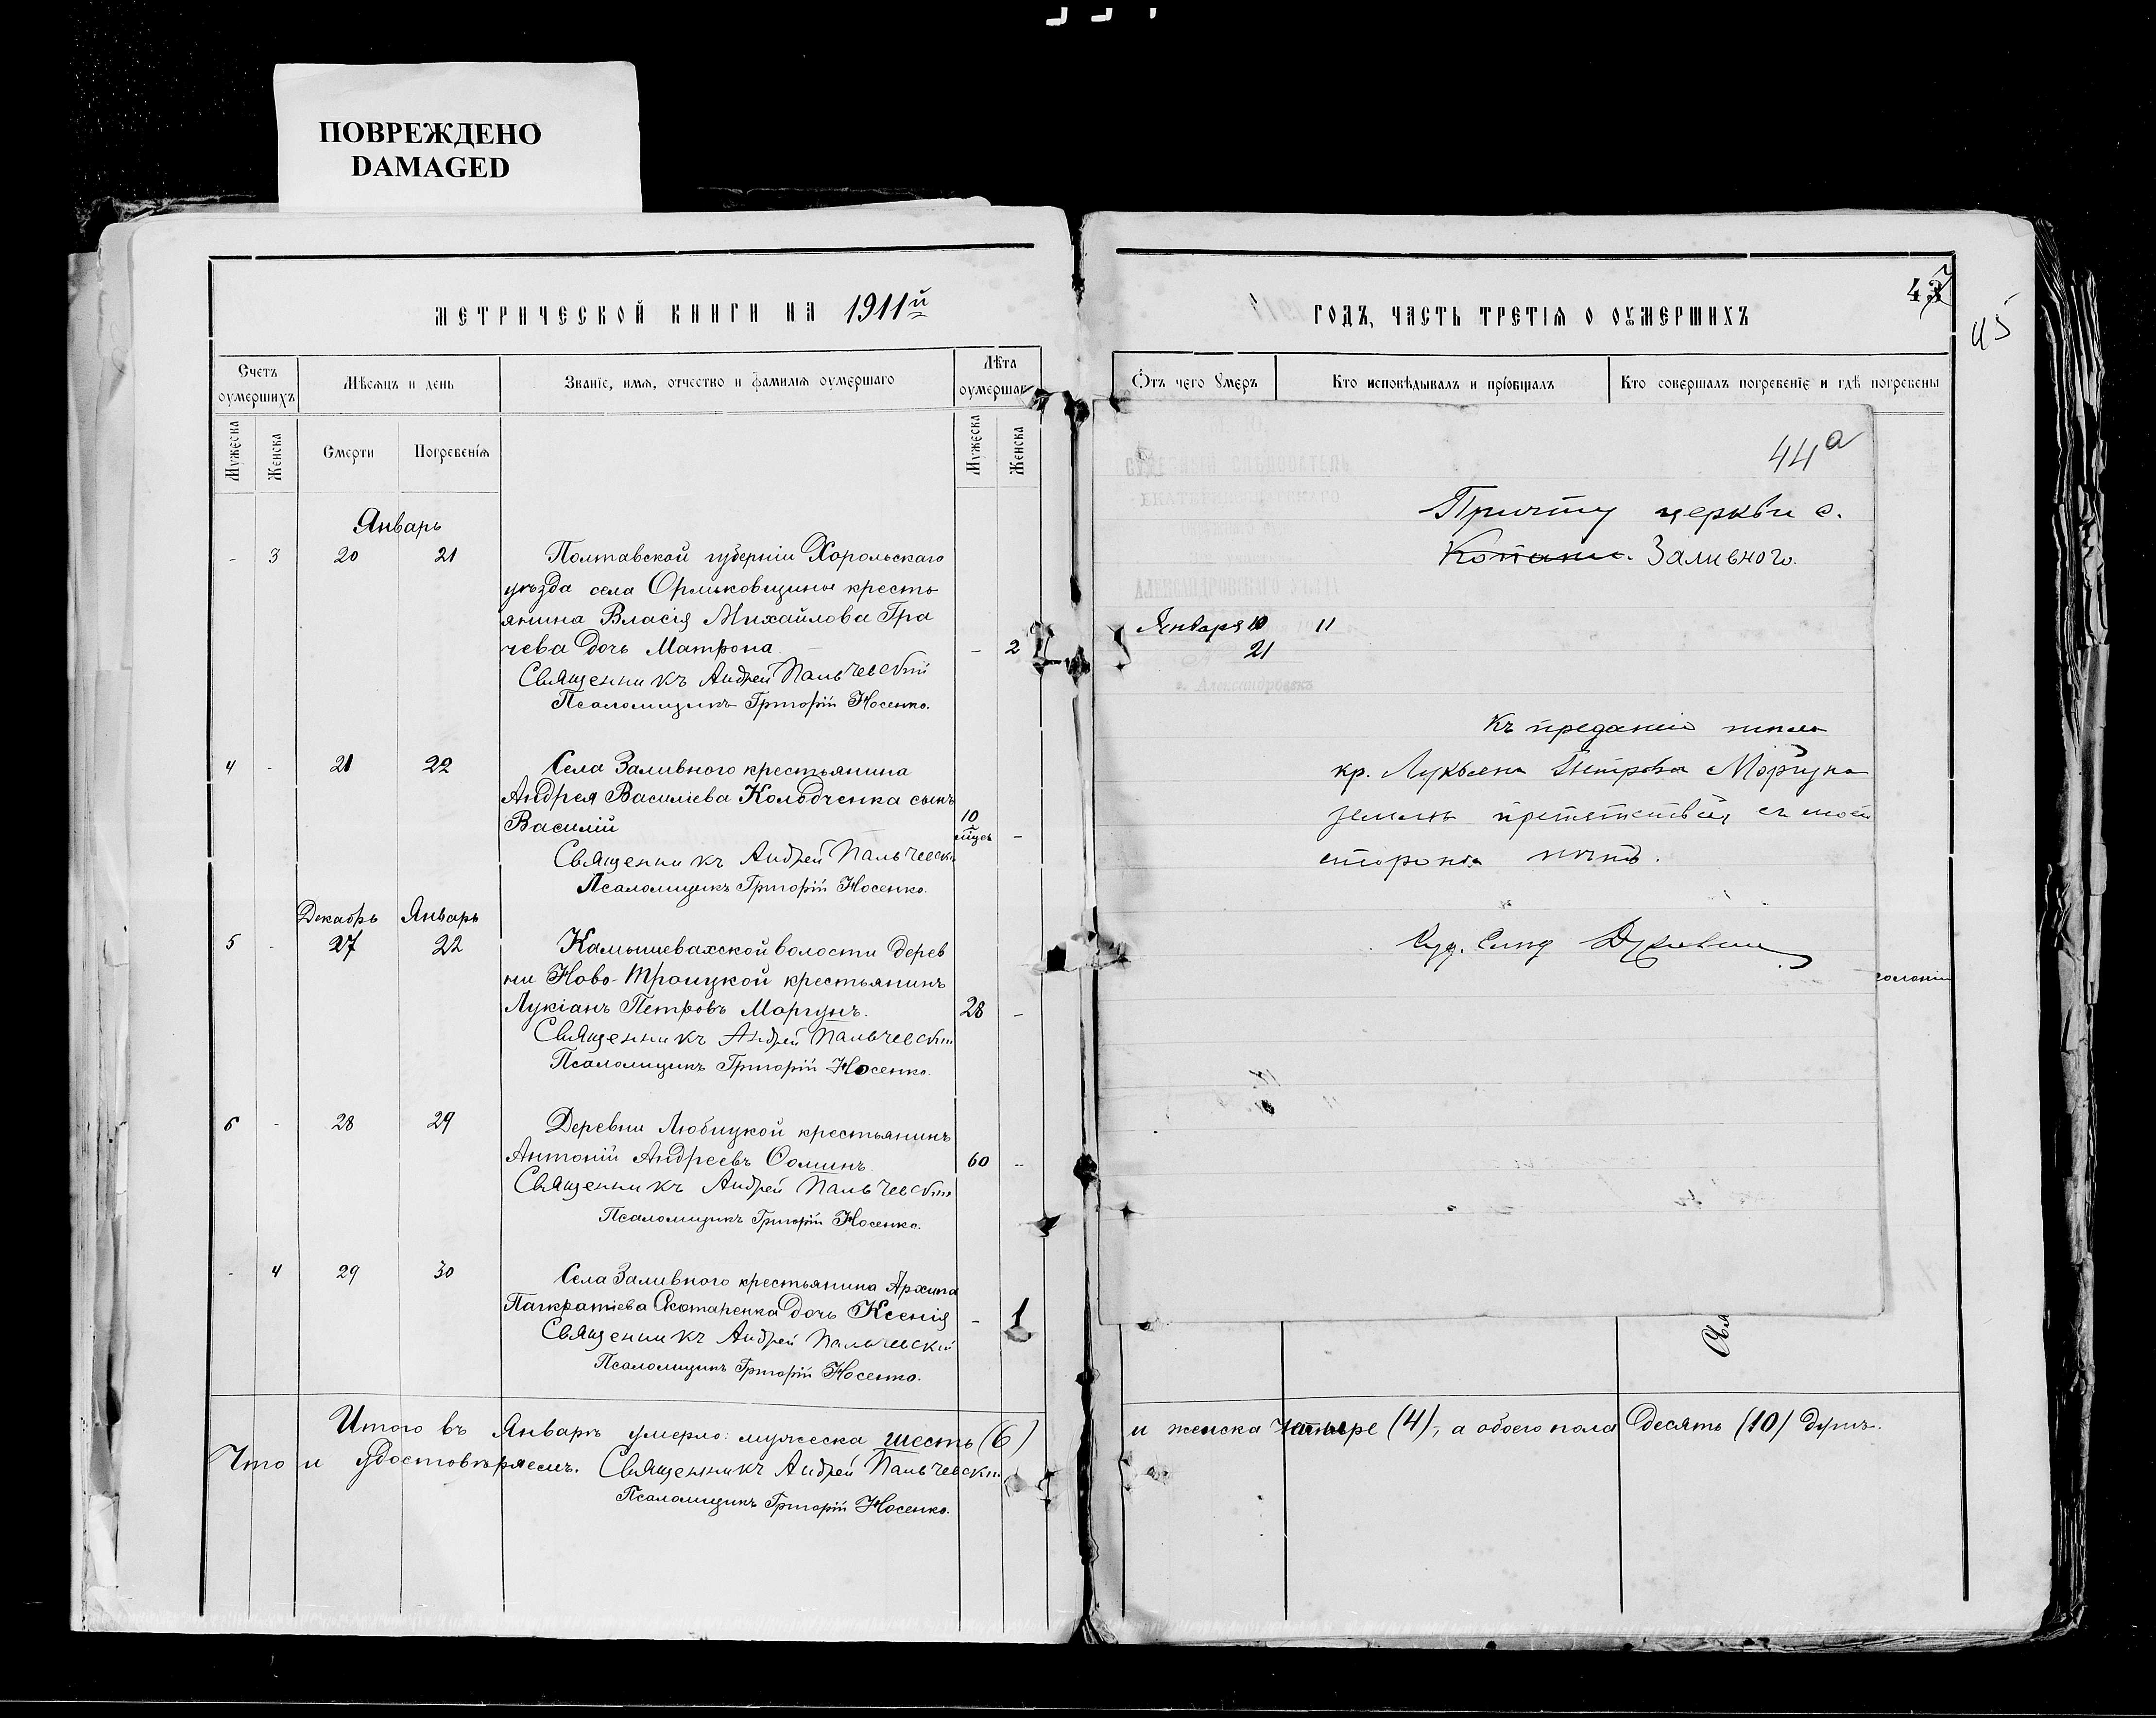 ПОВРЕЖДЕНО
DAMAGED
МЕТРИЧЕСКОЙ КНИГИ НА 1911й
Счетъ оумершихъ
Мѣсяцъ и день
Званіе, имя, отчество и фамилія оумершаго
Лѣта оумершаго
Мужеска
Женска
Смерти
Погребенія
Мужеска
Женска
Январь
- 3 20 21 Полтавской губерніи Хорольскаго
уѣзда села Орликовщины кресть
янина Власія Михайлова Гра
чева дочь Матрона - 2
Священникъ Андрей Пальчевскій
Псаломщикъ Григорій Носенко.
4 - 21 22 Села Заливного крестьянина
Андрея Василіева Колодченка сынъ
Василій 10 мѣсяц -
Священникъ Андрей Пальчевскій
Псаломщикъ Григорій Носенко.
Декабрь Январь
5 - 27 22 Камышевахской волости дерев
ни Ново-Троицкой крестьянинъ
Лукіанъ Петровъ Моргунъ. 28 -
Священникъ Андрей Пальчевскій
Псаломщикъ Григорій Носенко.
6 - 28 29 Деревни Любицкой крестьянинъ
Антоній Андреевъ Ѳоминъ 60 -
Священникъ Андрей Пальчевскій
Псаломщикъ Григорій Носенко.
- 4 29 30 Села Заливного крестьянина Архипа
Панкратіева Скотаренка дочь Ксенія - 1
Священникъ Андрей Пальчевскій
Псаломщикъ Григорій Носенко.
Итого въ Январѣ умерло: мужеска шесть (6)
Что и удостовѣряемъ. Священникъ Андрей Пальчевскій
Псаломщикъ Григорій Носенко.
43
45
ГОДЪ, ЧАСТЬ ТРЕТІЯ О ОУМЕРШИХЪ
Отъ чего умеръ
Кто исповѣдывалъ и пріобщалъ
Кто совершалъ погребеніе и гдѣ погребены
44а
Причту церкви с.
Копани. Заливного.
СУДЕБНЫЙ СЛѢДОВАТЕЛЬ
АЛЕКСАНДРОВСКАГО УѢЗДА
Января 10 11
21
г. Александровскъ
Къ преданію тѣла
кр. Лукьяна Петрова Моргуна
землѣ препятствій съ моей
стороны нѣтъ.
Суд. Слѣд
колоніи
Свя
и женска четыре (4), а обоего пола десять (10) душъ.